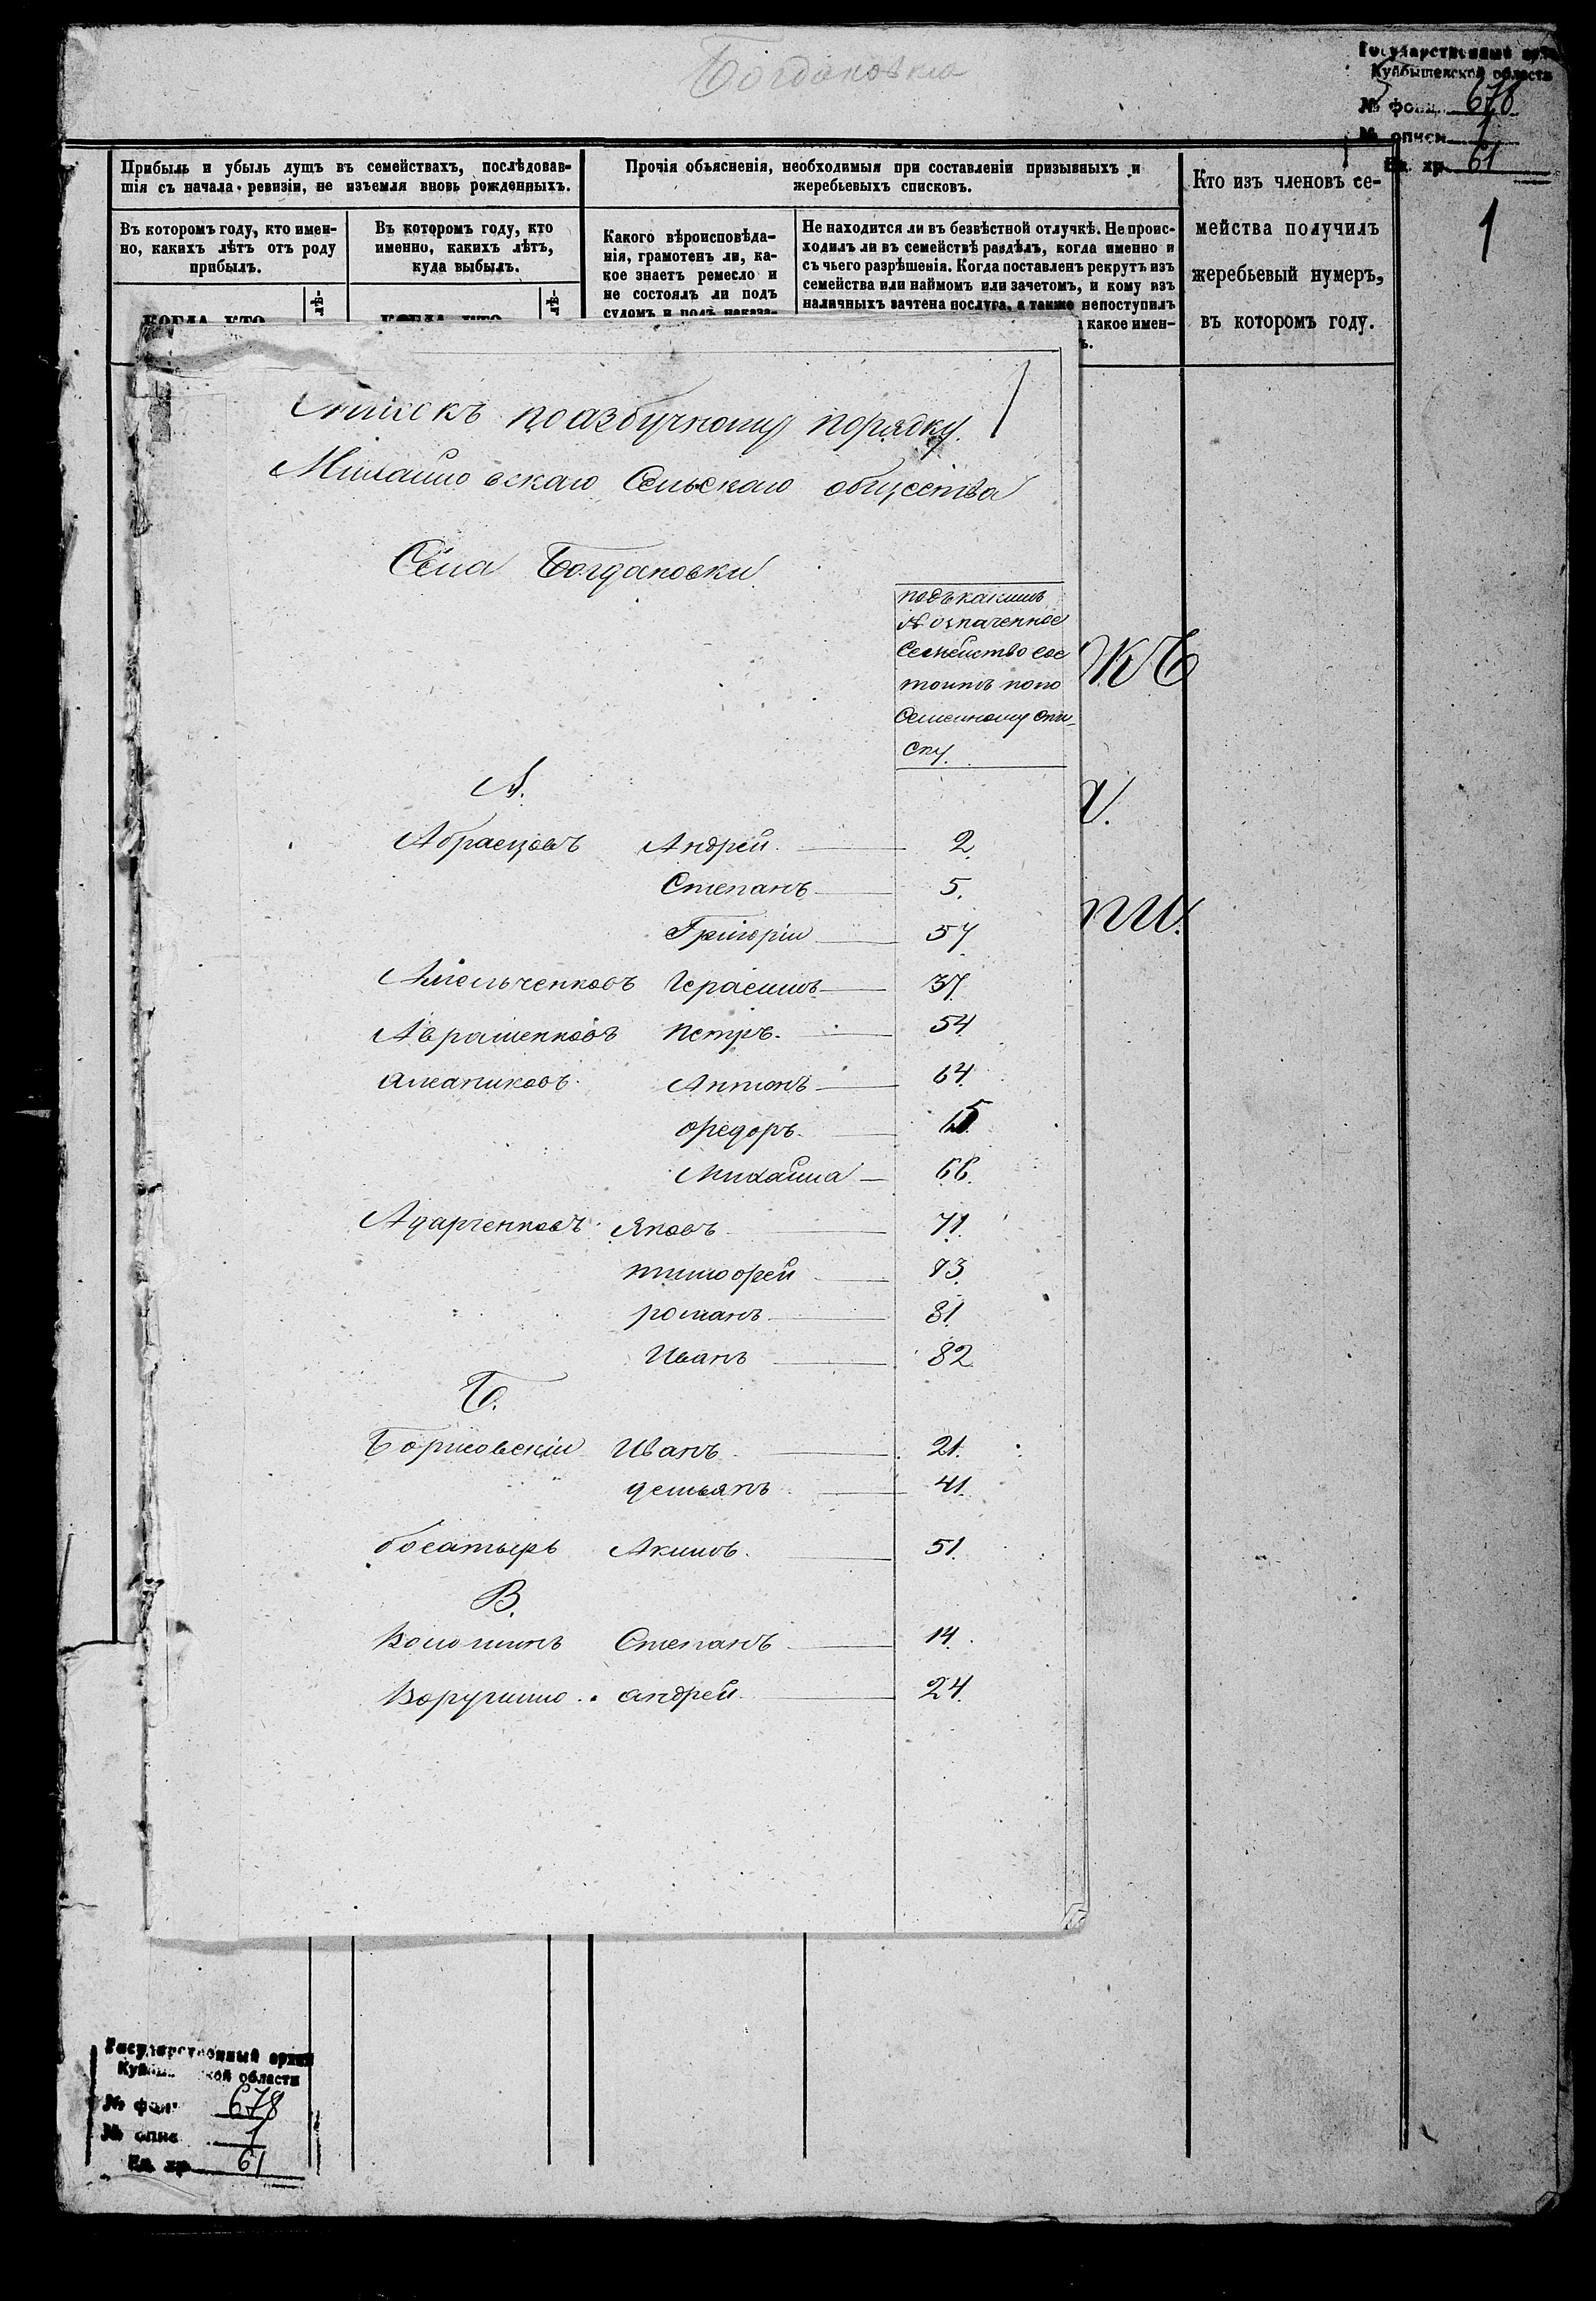 Богдановка
Государственный архив
Куйбышевской области
№ фонд. 678
№ описи 1
Ед. хр. 61
1
Прибыль и убыль душъ въ семействахъ, послѣдовав-
шія съ начала ревизіи, не изъемля вновь рожденныхъ.
Въ которомъ году, кто имен-
но, какихъ лѣтъ отъ роду
прибылъ.
Въ которомъ году, кто
именно, какихъ лѣтъ,
куда выбылъ.
когда кто
лѣ-
когда кто
лѣ-
Прочія объясненія, необходимыя при составленіи призывныхъ и
жеребьевыхъ списковъ.
Какого вѣроисповѣда-
нія, грамотенъ ли, ка-
кое знаетъ ремесло и
не состоялъ ли подъ
судомъ и подъ наказа-
Не находится ли въ безвѣстной отлучкѣ. Не проис-
ходилъ ли въ семействѣ раздѣлъ, когда именно и
съ чьего разрѣшенія. Когда поставленъ рекрутъ изъ
семейства или наймомъ или зачетомъ, и кому изъ
наличныхъ зачтена послуга, а также непоступилъ
какое имен-
ъ.
Кто изъ членовъ се-
мейства получилъ
жеребьевый нумеръ,
въ которомъ году.
Списокъ поазбучному порядку
Михайловскаго Сельскаго общества
Села Богдановки
подъ какимъ
№ означенное
Семейство сос
тоитъ попо
Семейному спи-
ску.
А.
Абрасцовъ Андрей 2.
Степанъ 5.
Григорій 57
Амельченковъ Герасимъ 37
Аврашенковъ Петръ. 54
Антонъ 64
Ѳедоръ 65
Михаила 66.
Адарченковъ Яковъ 71.
тимофей 73.
романъ 81.
Иванъ 82
Б.
Борисовскій Иванъ 21.
демьянъ 41.
богатырь Акимъ. 51.
В.
Волошинъ Степанъ 14.
андрей 24.
къ
ки.
Государственный архив
Куйбышевской области
№ фонд 678
№ описи 1
Ед. хр. 61